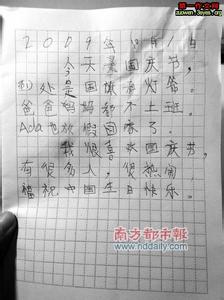 第一作文网
zuowen.3eyes.org
2009年10月1日
今天是国庆节,
到处是国旗和灯笼。
爸爸妈妈都不上班。
Ada也放假回家了。
我很喜欢国庆节,
有很多人,很热闹
祝中国生日快乐。
南方都市报
www.nddaily.com